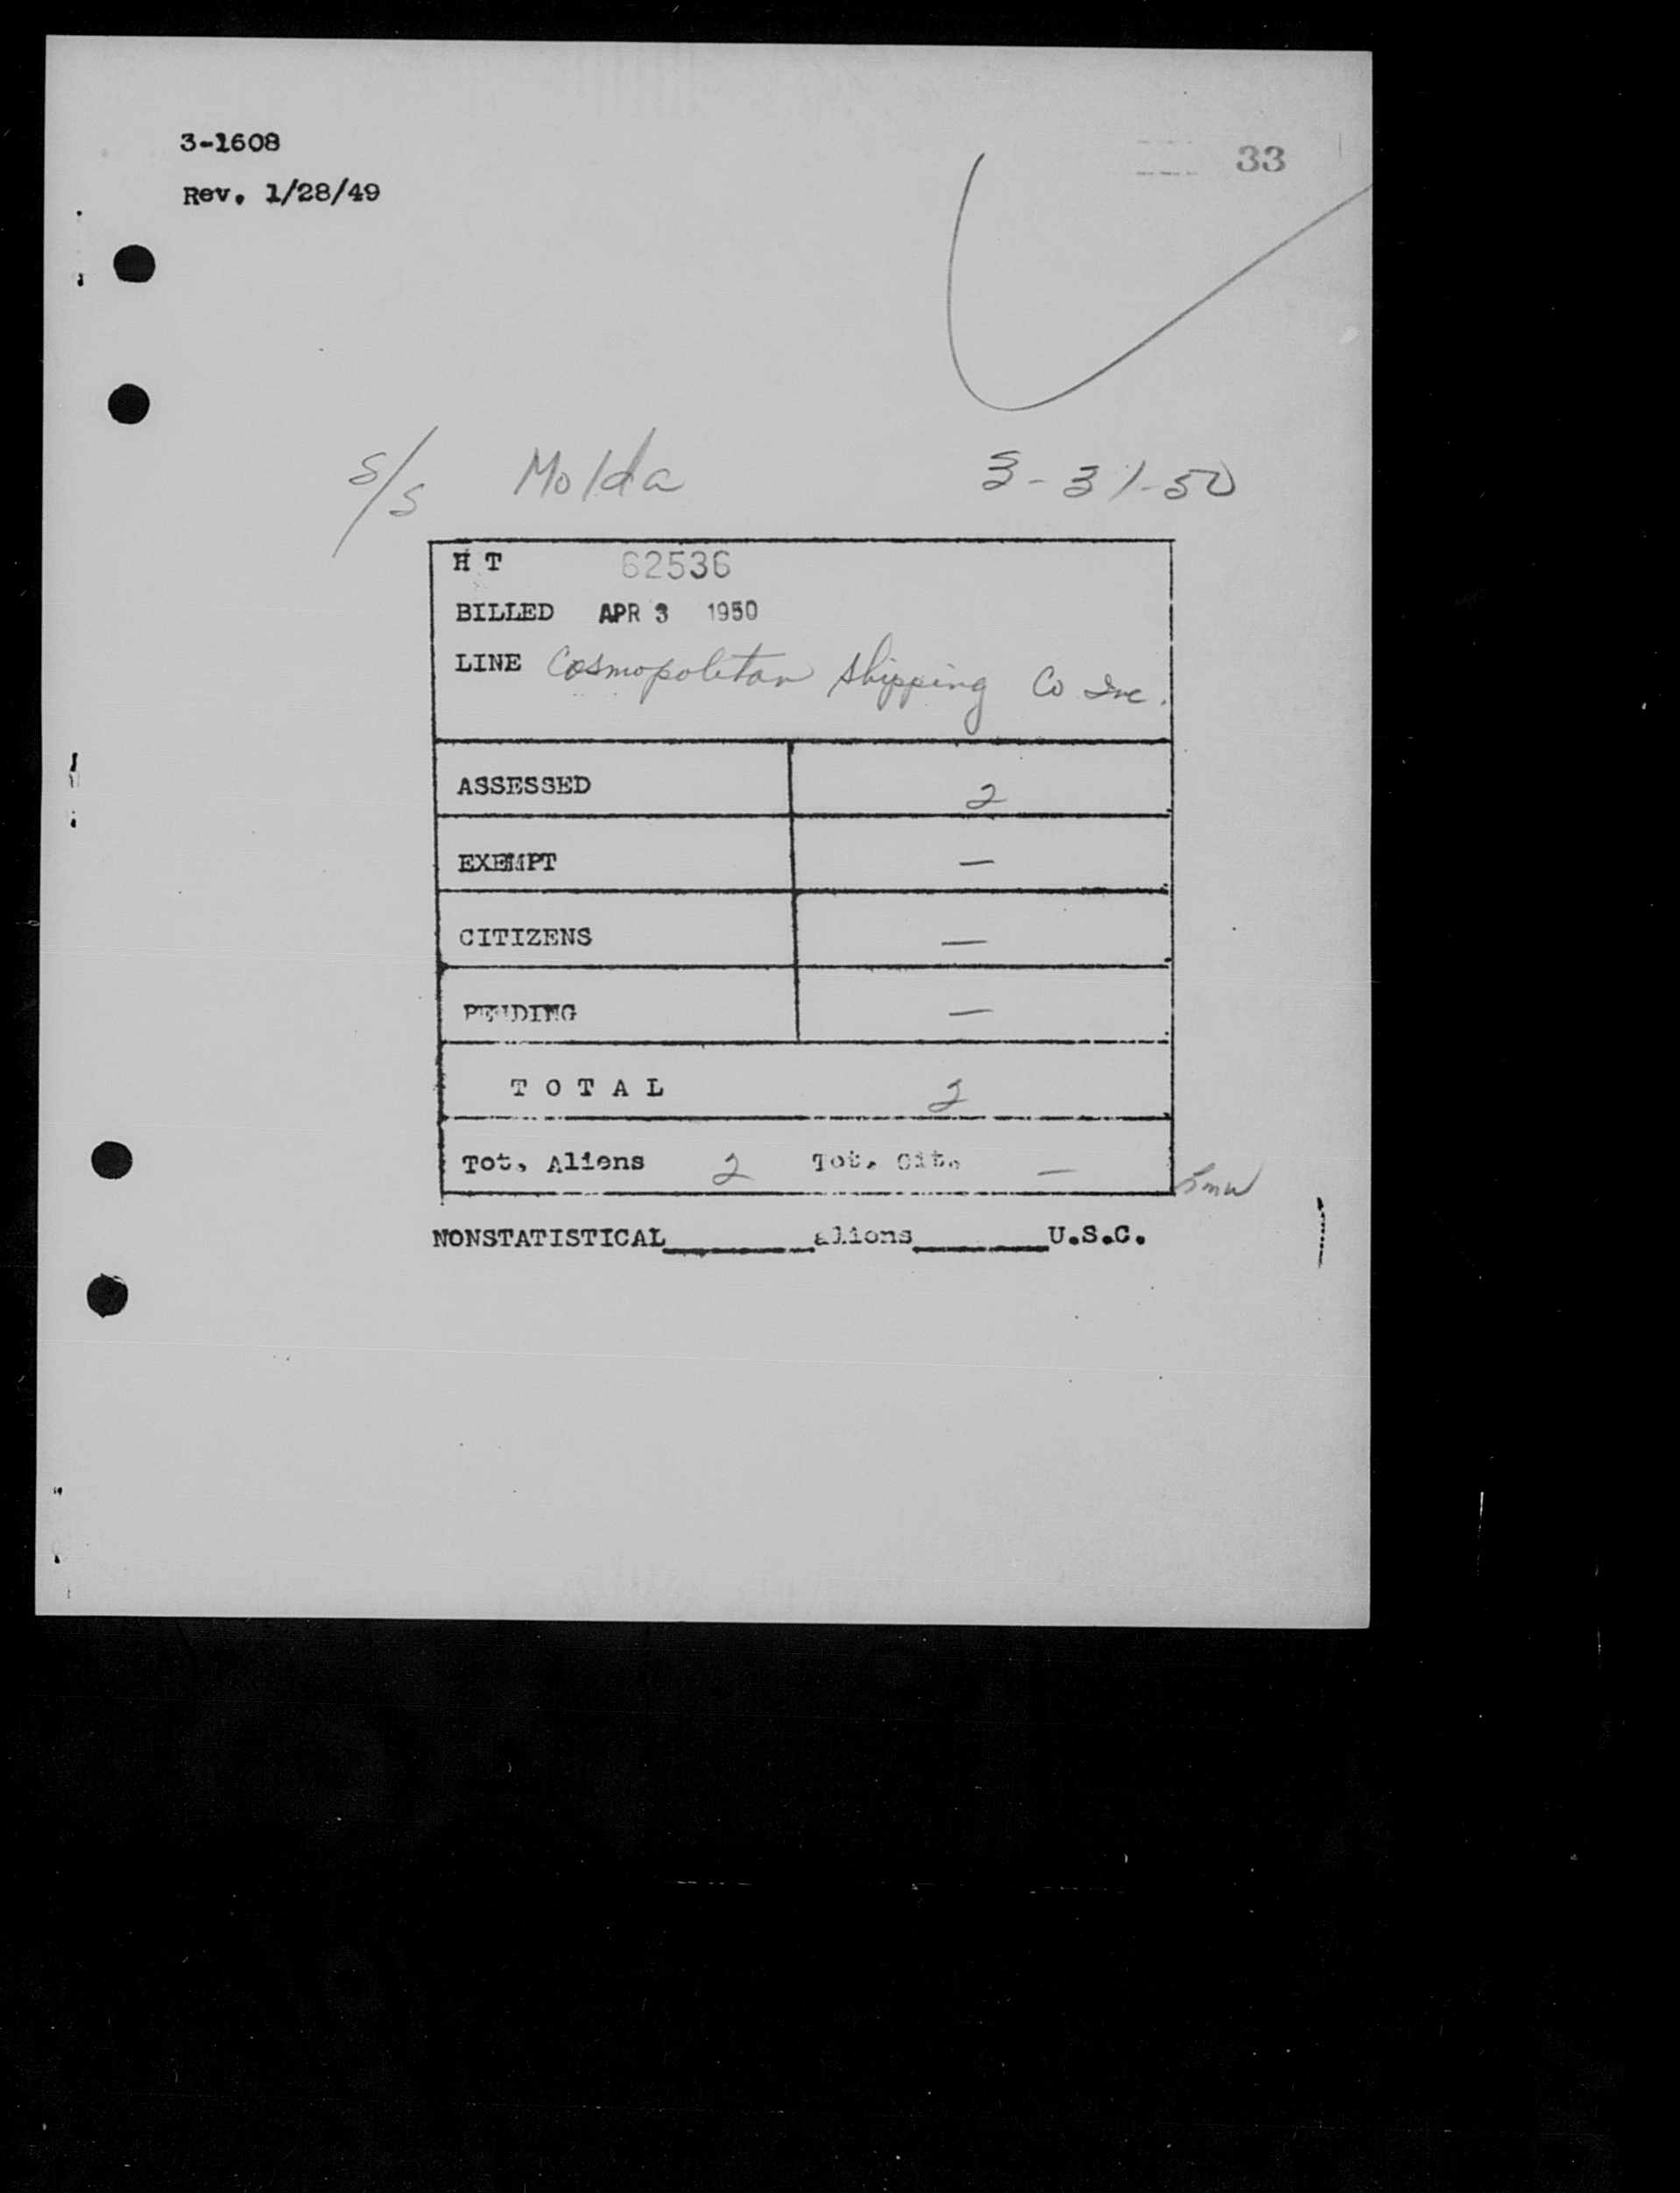 3-1608
33
Rev. 1/28/49
S/S Molda 3-31-50
H T 62536
BILLED APR 3 1950
LINE Cosmopolitan Shipping Co Inc.
ASSESSED 2
EXEMPT —
CITIZENS —
PENDING —
T O T A L 2
Tot. Aliens 2 Tot. Cit. —
NONSTATISTICAL________aliens________U.S.C.